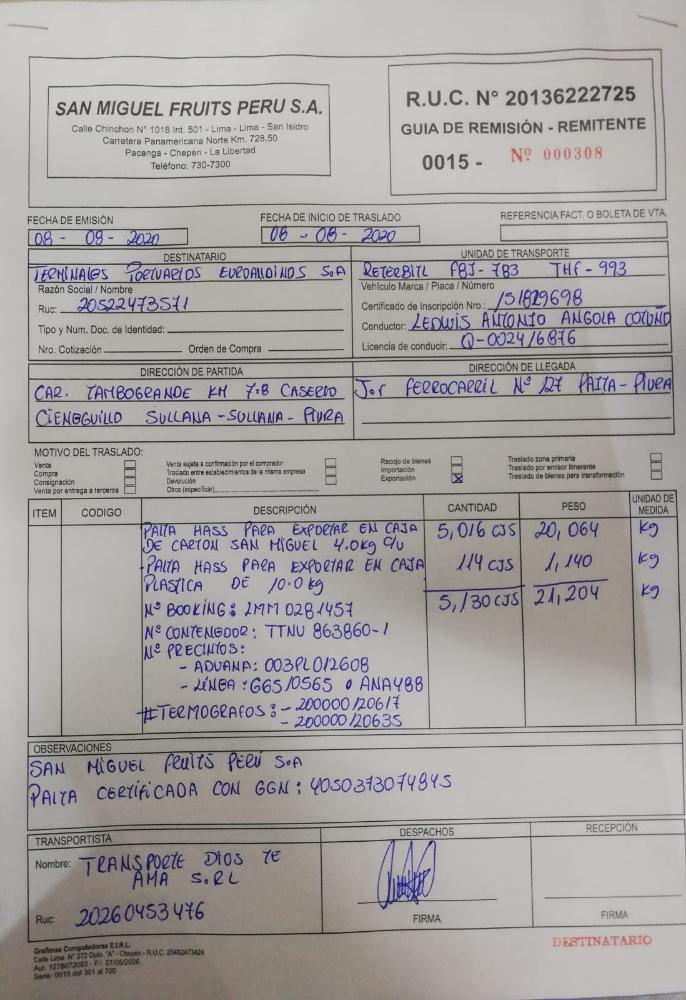 SAN MIGUEL FRUITS PERU S.A.
Calle Chinchon N° 1018 Int. 501 - Lima - Lima - San Isidro
Carretera Panamericana Norte Km. 728.50
Pacanga - Chepén - La Libertad
Teléfono: 730-7300
R.U.C. N° 20136222725
GUIA DE REMISIÓN - REMITENTE
0015 - Nº 000308
FECHA DE EMISIÓN
08 - 08 - 2020
FECHA DE INICIO DE TRASLADO
08 - 08 - 2020
REFERENCIA FACT. O BOLETA DE VTA.
DESTINATARIO
TERMINALES PORTUARIOS EUROANDINOS S.A
Razón Social / Nombre
Ruc: 20522473571
Tipo y Num. Doc. de Identidad:
Nro. Cotización Orden de Compra
UNIDAD DE TRANSPORTE
PBJ-783 THF-993
Vehículo Marca / Placa / Número
Certificado de Inscripción Nro.: 151829698
Conductor: ANTONIO ANGOLA
Licencia de conducir: Q-00246876
DIRECCIÓN DE PARTIDA
CAR. TAMBOGRANDE KM 7.8 CASERIO
CIENEGUILLO SULLANA - SULLANA - PIURA
DIRECCIÓN DE LLEGADA
FERROCARRIL Nº 127 PAITA - PIURA
MOTIVO DEL TRASLADO:
Venta
Compra
Consignación
Venta por entrega a terceros
Venta sujeta a confirmación por el comprador
Traslado entre establecimientos de la misma empresa
Devolución
Otros (especificar)
Recojo de bienes
Importación
Exportación X
Traslado zona primaria
Traslado por emisor itinerante
Traslado de bienes para transformación
ITEM CODIGO DESCRIPCIÓN CANTIDAD PESO UNIDAD DE MEDIDA
PALTA HASS PARA EXPORTAR EN CAJA 5,016 CJS 20,064 kg
DE CARTON SAN MIGUEL 4.0kg c/u
- PALTA HASS PARA EXPORTAR EN CAJA 114 CJS 1,140 kg
PLASTICA DE 10.0 kg
5,130 CJS 21,204 kg
Nº BOOKING: LMM0281457
Nº CONTENEDOR: TTNU 863860-1
Nº PRECINTOS:
- ADUANA: 003PL012608
- LÍNEA: G6510565 ANA488
#TERMOGRAFOS: - 200000120617
- 200000120635
OBSERVACIONES
SAN MIGUEL FRUITS PERÚ S.A
PALTA CERTIFICADA CON GGN: 4050373074845
TRANSPORTISTA
Nombre: TRANSPORTE DIOS TE
AMA S.RL
Ruc: 20260453476
DESPACHOS
FIRMA
RECEPCIÓN
FIRMA
Grafimas Computadoras E.I.R.L.
Calle Lima N° 272 Dpto. "A" - Chepén - R.U.C. 20482473424
Aut. 1278072063 - F.I. 07/05/2020
Serie: 0015 del 301 al 700
DESTINATARIO